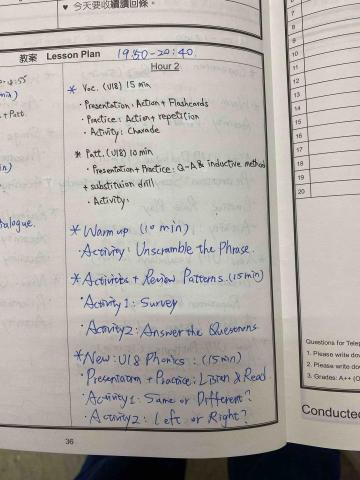 ♥ 今天要收續讀回條。
教案 Lesson Plan 19:50-20:40
Hour 2
* Voc. (U18) 15 min
· Presentation: Action + Flashcards
· Practice: Action + repetition
· Activity: Charade
* Patt. (U18) 10 min
· Presentation + Practice: Q-A & inductive method
+ substituion drill
· Activity:
* Warm up (10 min)
· Activity: Unscramble the Phrase.
* Activities + Review Patterns. (15 min)
· Activity 1: Survey
· Activity 2: Answer the Questions
* New: U18 Phonics: (15 min)
· Presentation + Practice: Listen & Read
· Activity 1: Same or Different?
· Activity 2: Left or Right?
36
+ Patt.
alogue.
10
11
12
13
14
15
16
17
18
19
20
Questions for Telep
1. Please write dow
2. Please write dow
3. Grades: A++ (O
Conducted